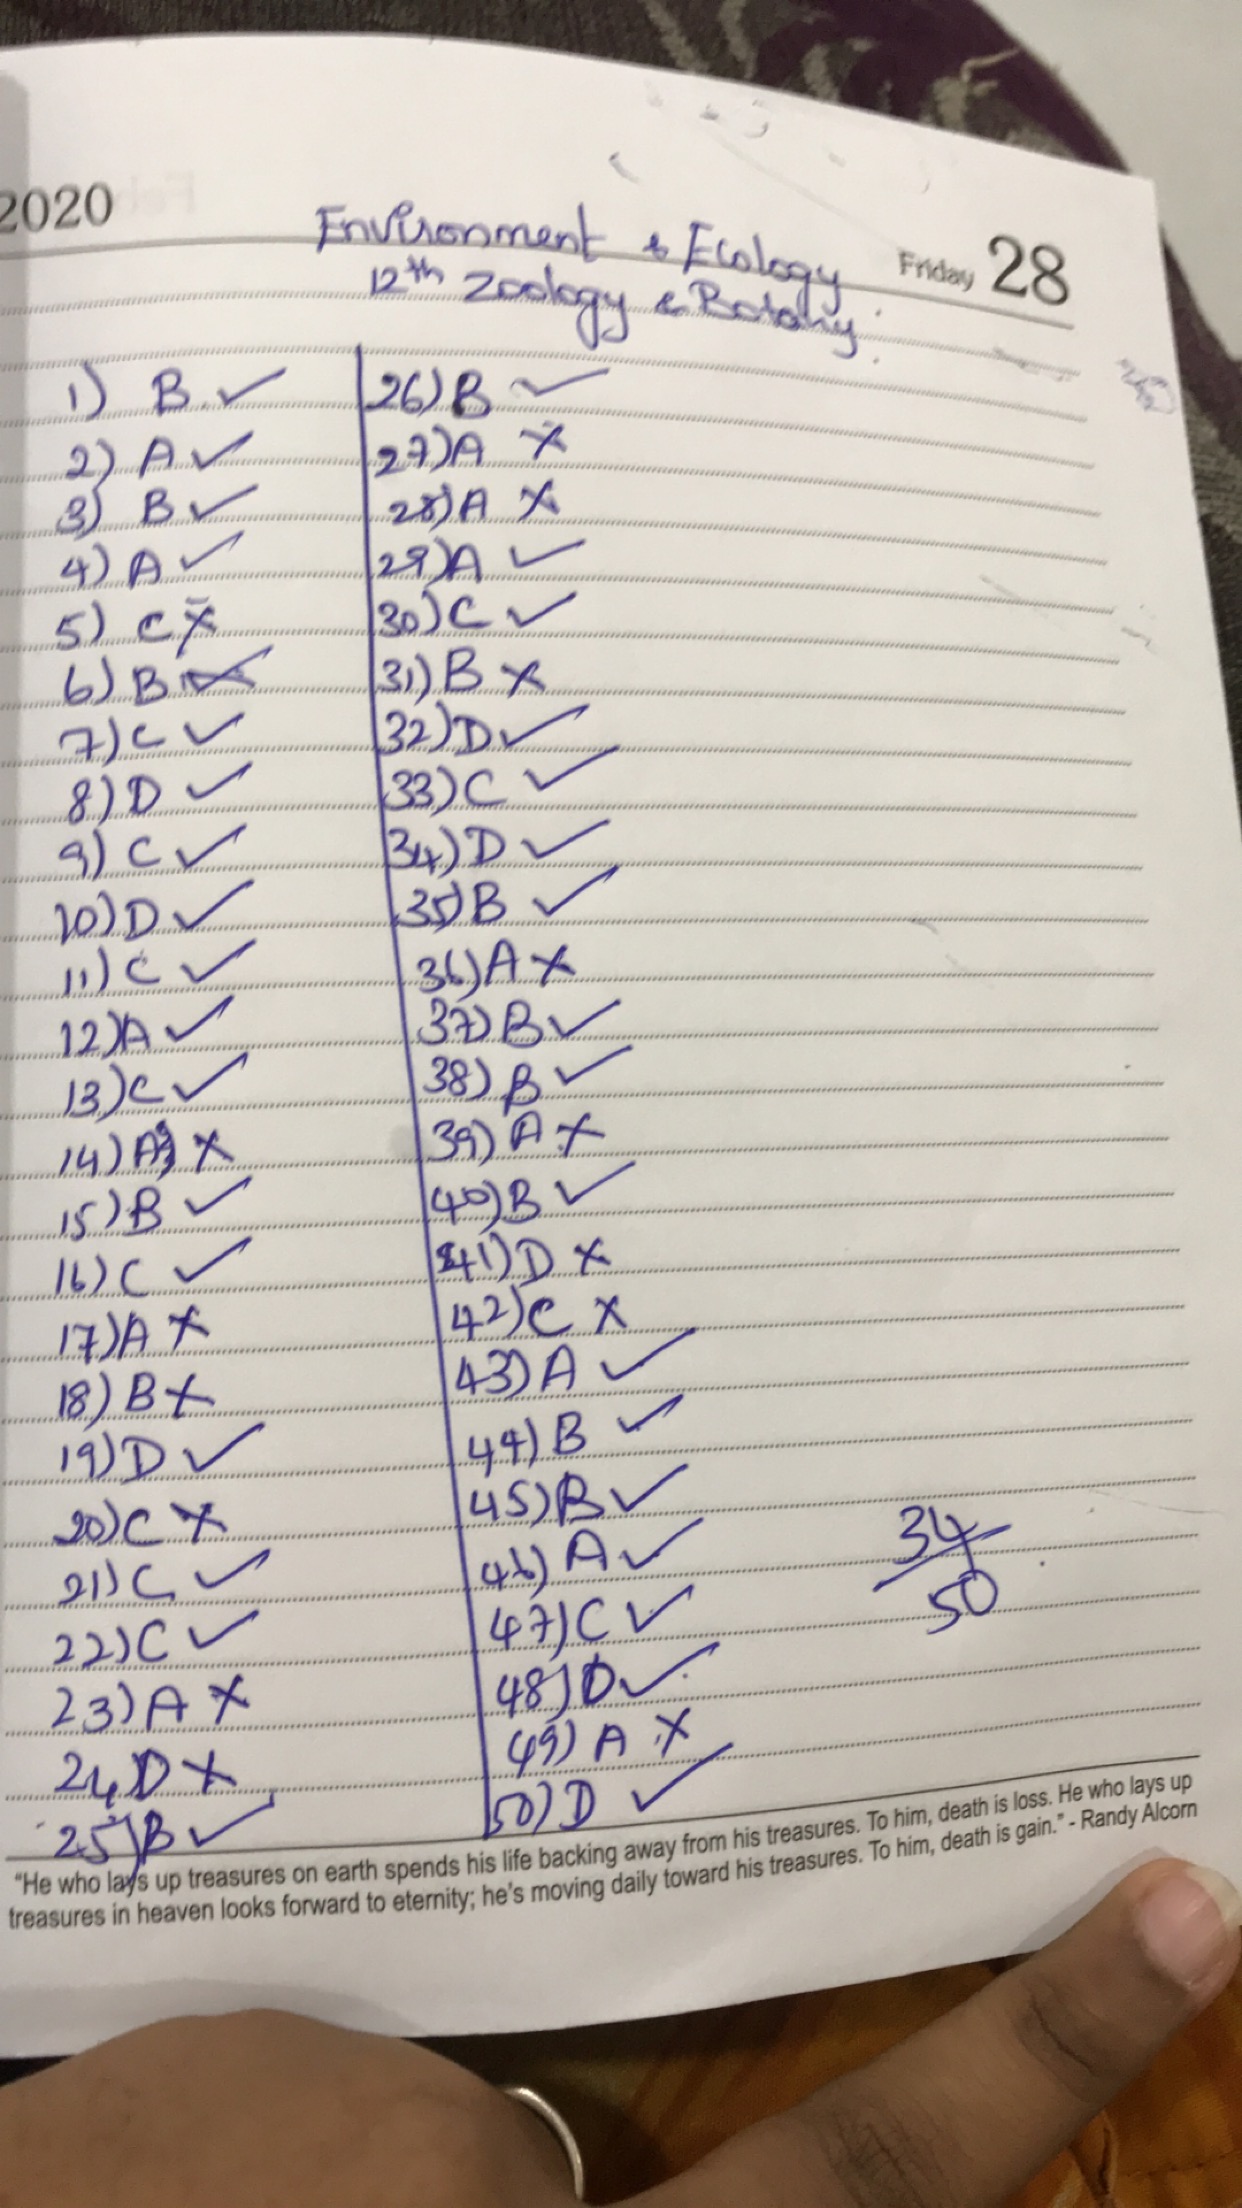 2020
Environment & Ecology
Friday 28
12th Zoology & Botany.
1) B ✓
2) A ✓
3) B ✓
4) A ✓
5) C X
6) B
7) C ✓
8) D ✓
9) C ✓
10) D ✓
11) C ✓
12) A ✓
13) C ✓
14) A X
15) B ✓
16) C ✓
17) A X
18) B X
19) D ✓
20) C X
21) C ✓
22) C ✓
23) A X
24) D X
25) B ✓
26) B ✓
27) A X
28) A X
29) A ✓
30) C ✓
31) B X
32) D ✓
33) C ✓
34) D ✓
35) B ✓
36) A X
37) B ✓
38) B ✓
39) A X
40) B ✓
41) D X
42) C X
43) A ✓
44) B ✓
45) B ✓
46) A ✓
47) C ✓
48) D ✓
49) A X
50) D ✓
34
50
"He who lays up treasures on earth spends his life backing away from his treasures. To him, death is loss. He who lays up
treasures in heaven looks forward to eternity; he's moving daily toward his treasures. To him, death is gain." - Randy Alcorn